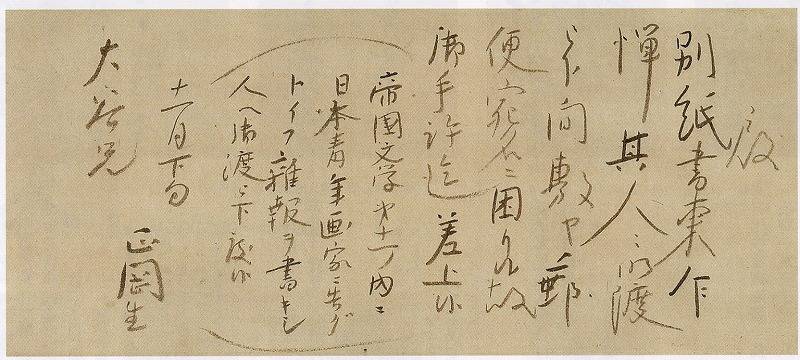 別紙書柬乍
憚其人ニ御渡
被下間敷ヤ郵
便宛名ニ困リ候故
御手許迄差上候
帝国文学第十一ノ内ニ
日本青年画家ニ告グ
トイフ雑報ヲ書キシ
人ヘ御渡シ下度候
十一月下旬
正岡生
大谷兄